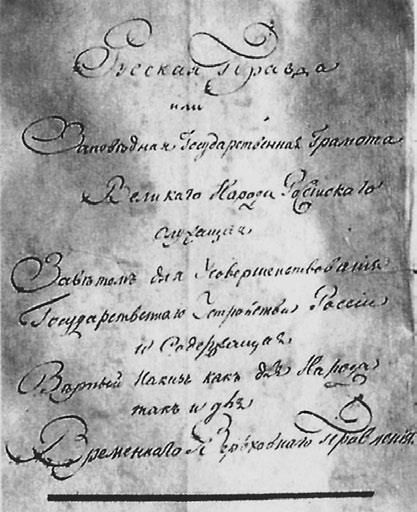 Русская Правда
или
Заповѣдная Государственная Грамота
Великаго Народа Россiйскаго
служащая
Завѣтомъ для Усовершенствованiя
Государственнаго Устройства Россiи
и Содержащая
Вѣрный Наказъ какъ для Народа
такъ и для
Временнаго Верховнаго Правленiя.